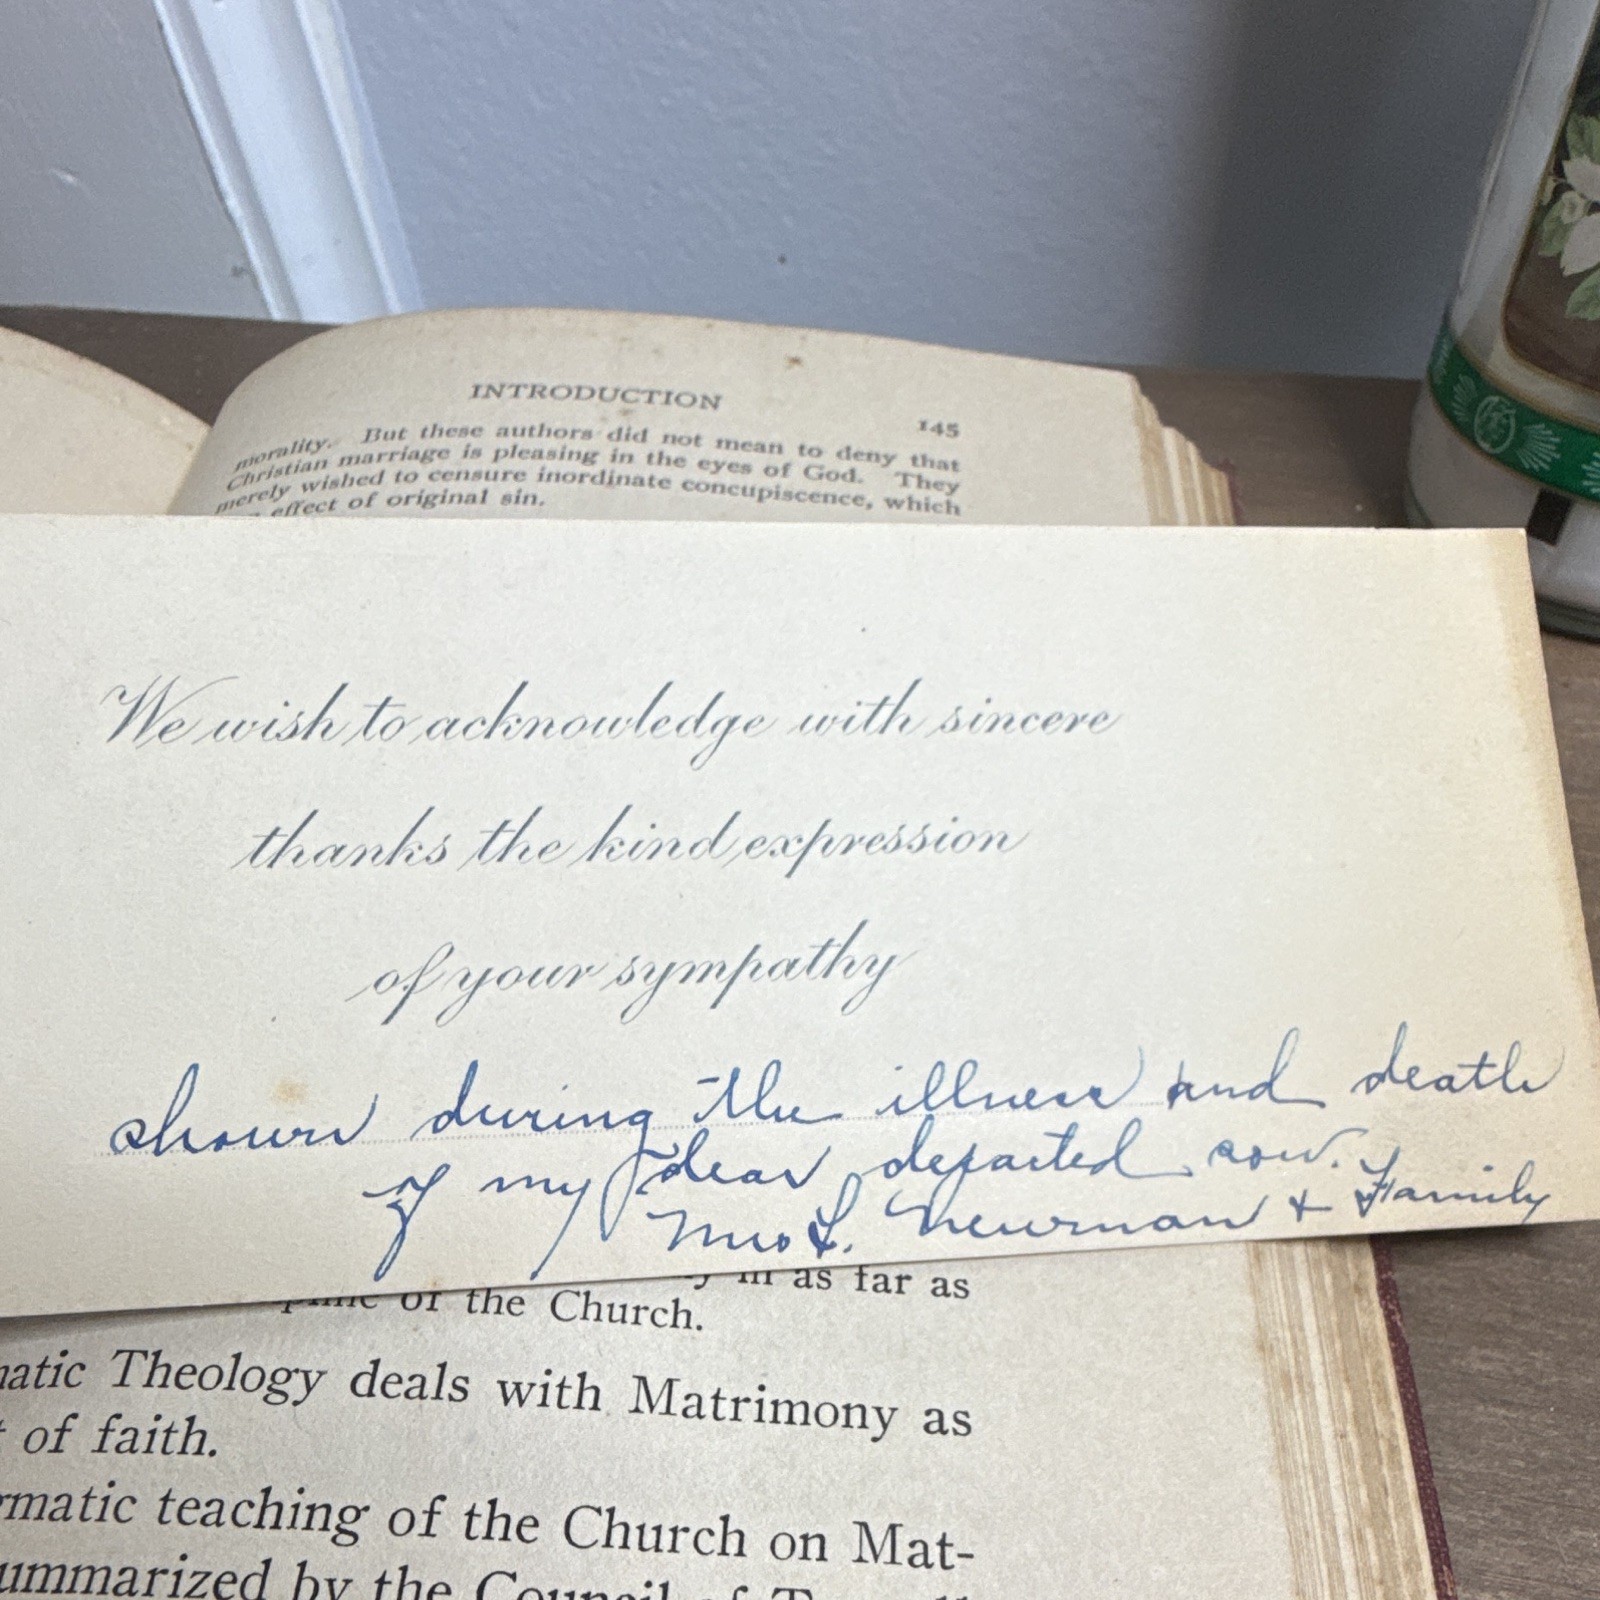 INTRODUCTION 145
morality. But these authors did not mean to deny that
Christian marriage is pleasing in the eyes of God. They
merely wished to censure inordinate concupiscence, which
effect of original sin.
We wish to acknowledge with sincere
thanks the kind expression
of your sympathy
shown during the illness and death
of my dear departed son.
Mrs L. Newman & Family
in as far as
of the Church.
matic Theology deals with Matrimony as
of faith.
gmatic teaching of the Church on Mat-
ummarized by the Council of